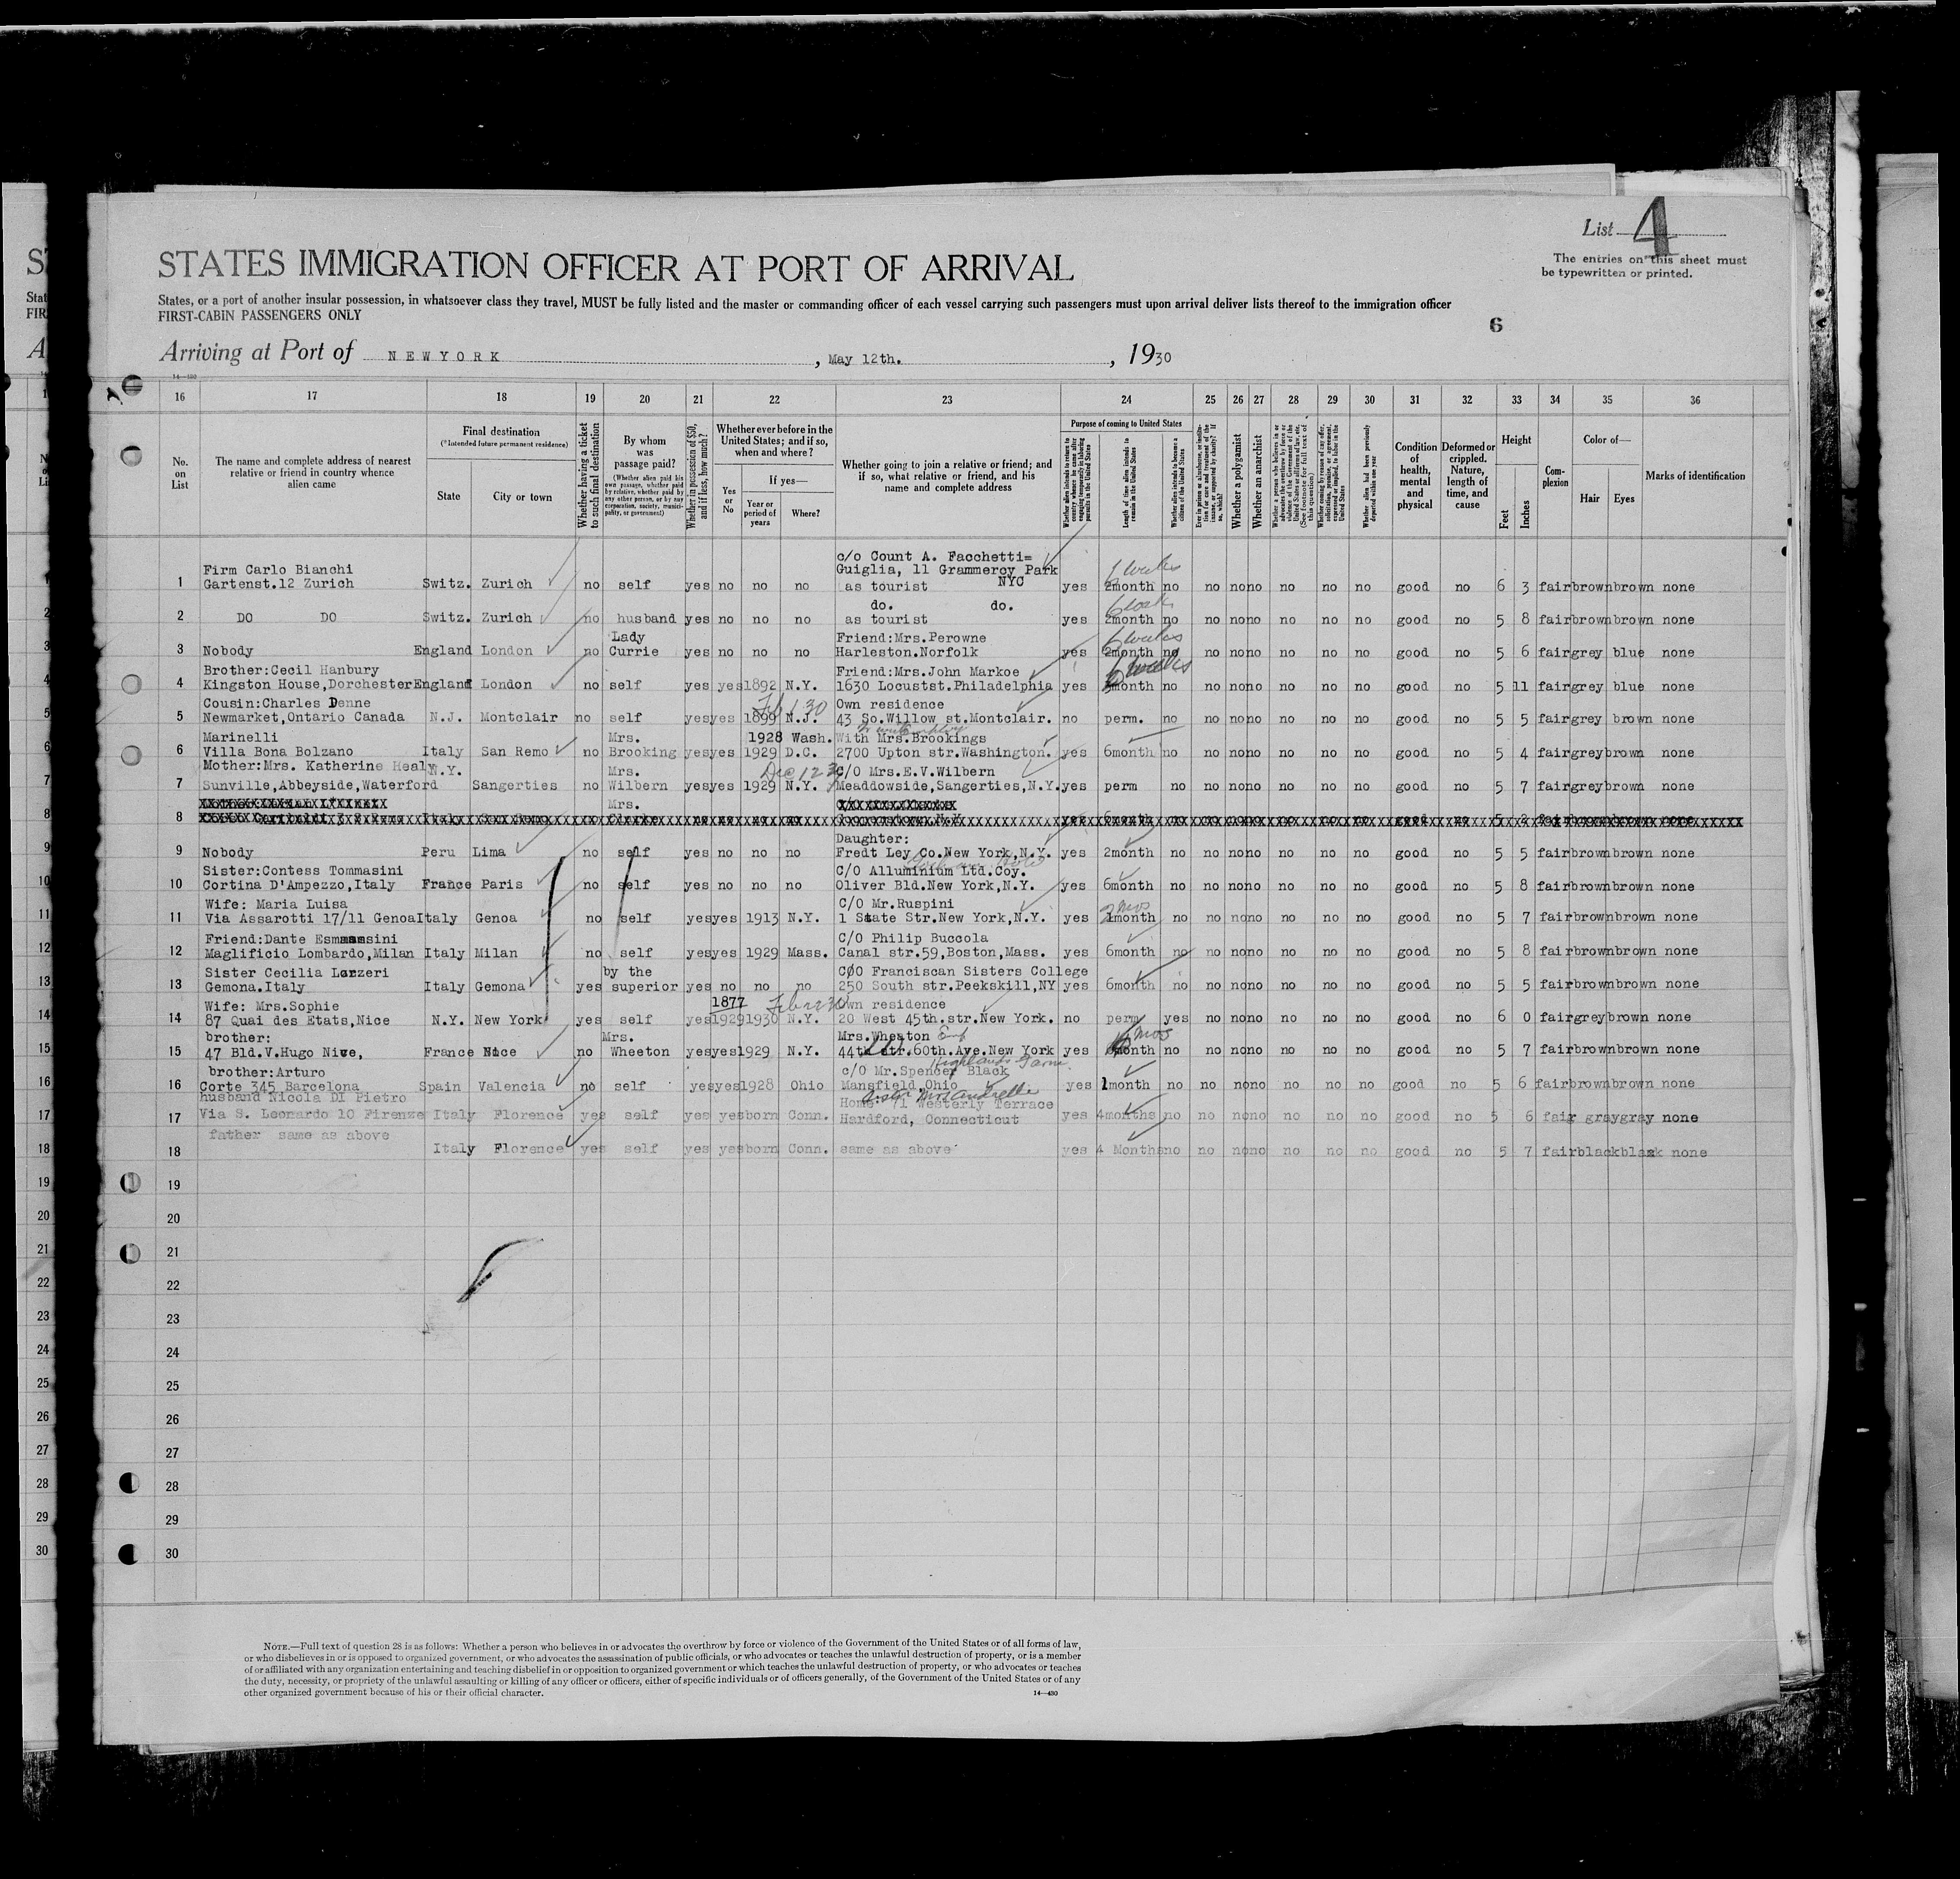 List 4
The entries on this sheet must
be typewritten or printed.
STATES IMMIGRATION OFFICER AT PORT OF ARRIVAL
States, or a port of another insular possession, in whatsoever class they travel, MUST be fully listed and the master or commanding officer of each vessel carrying such passengers must upon arrival deliver lists thereof to the immigration officer
FIRST-CABIN PASSENGERS ONLY
6
Arriving at Port of NEWYORK, May 12th., 1930
14—480
16 17 18 19 20 21 22 23 24 25 26 27 28 29 30 31 32 33 34 35 36
No. on List
The name and complete address of nearest relative or friend in country whence alien came
Final destination
(*Intended future permanent residence)
State
City or town
Whether having a ticket to such final destination
By whom was passage paid?
(Whether alien paid his own passage, whether paid by relative, whether paid by any other person, or by any corporation, society, municipality, or government)
Whether in possession of $50, and if less, how much?
Whether ever before in the United States; and if so, when and where?
Yes or No
If yes—
Year or period of years
Where?
Whether going to join a relative or friend; and if so, what relative or friend, and his name and complete address
Purpose of coming to United States
Whether alien intends to return to country whence he came after engaging temporarily in laboring pursuits in the United States
Length of time alien intends to remain in the United States
Whether alien intends to become a citizen of the United States
Ever in prison or almshouse, or institution for care and treatment of the insane, or supported by charity? If so, which?
Whether a polygamist
Whether an anarchist
Whether a person who believes in or advocates the overthrow by force or violence of the Government of the United States or all forms of law, etc. (See footnote for full text of this question)
Whether coming by reason of any offer, solicitation, promise, or agreement, expressed or implied, to labor in the United States
Whether alien had been previously deported within one year
Condition of health, mental and physical
Deformed or crippled. Nature, length of time, and cause
Height
Feet
Inches
Complexion
Color of—
Hair
Eyes
Marks of identification
c/o Count A. Facchetti=
Firm Carlo Bianchi Guiglia, 11 Grammercy Park 6 weeks
1 Gartenst.12 Zurich Switz. Zurich no self yes no no no as tourist NYC yes 2month no no no no no no no good no 6 3 fair brown brown none
do. do. 6 weeks
2 DO DO Switz. Zurich no husband yes no no no as tourist yes 2month no no no no no no no good no 5 8 fair brown brown none
Lady Friend:Mrs.Perowne 6 weeks
3 Nobody England London no Currie yes no no no Harleston.Norfolk yes 2month no no no no no no no good no 5 6 fair grey blue none
Brother:Cecil Hanbury Friend:Mrs.John Markoe 6 weeks
4 Kingston House,Dorchester England London no self yes yes 1892 N.Y. 1630 Locustst.Philadelphia yes month no no no no no no no good no 5 11 fair grey blue none
Cousin:Charles Denne Feb 1 30 Own residence
5 Newmarket,Ontario Canada N.J. Montclair no self yes yes 1899 N.J. 43 So.Willow st.Montclair. no perm. no no no no no no no good no 5 5 fair grey brown none
Marinelli Mrs. 1928 Wash. With Mrs.Brookings
6 Villa Bona Bolzano Italy San Remo no Brooking yes yes 1929 D.C. 2700 Upton str.Washington. yes 6month no no no no no no no good no 5 4 fair grey brown none
Mother:Mrs. Katherine Healy N.Y. Mrs. Dec 12 30 C/O Mrs.E.V.Wilbern
7 Sunville,Abbeyside,Waterford Sangerties no Wilbern yes yes 1929 N.Y. Meaddowside,Sangerties,N.Y. yes perm no no no no no no no good no 5 7 fair grey brown none
Mrs.
8
Daughter:
9 Nobody Peru Lima no self yes no no no Fredt Ley Co.New York,N.Y. yes 2month no no no no no no no good no 5 5 fair brown brown none
Sister:Contess Tommasini C/O Alluminium Ltd.Coy.
10 Cortina D'Ampezzo,Italy France Paris no self yes no no no Oliver Bld.New York,N.Y. yes 6month no no no no no no no good no 5 8 fair brown brown none
Wife: Maria Luisa C/O Mr.Ruspini 2 mos
11 Via Assarotti 17/11 Genoa Italy Genoa no self yes yes 1913 N.Y. 1 State Str.New York,N.Y. yes month no no no no no no no good no 5 7 fair brown brown none
Friend:Dante C/O Philip Buccola
12 Maglificio Lombardo,Milan Italy Milan no self yes yes 1929 Mass. Canal str.59,Boston,Mass. yes 6month no no no no no no no good no 5 8 fair brown brown none
Sister Cecilia by the Franciscan Sisters College
13 Gemona.Italy Italy Gemona yes superior yes no no no 250 South str.Peekskill,NY yes 6month no no no no no no no good no 5 5 fair brown brown none
Wife: Mrs.Sophie 1877 Own residence
14 87 Quai des Etats,Nice N.Y. New York yes self yes 1929 1930 N.Y. 20 West 45th.str.New York. no perm yes no no no no no no good no 6 0 fair grey brown none
brother: Mrs. Mrs.Wheaton mos
15 47 Bld.V.Hugo Nice, France Nice no Wheeton yes yes 1929 N.Y. 44th str.60th.Ave.New York yes month no no no no no no no good no 5 7 fair brown brown none
brother:Arturo c/o Mr.Spencer Black
16 Corte 345 Barcelona Spain Valencia no self yes yes 1928 Ohio Mansfield,Ohio yes 1month no no no no no no no good no 5 6 fair brown brown none
husband Nicola DI Pietro Home 71 Westerly Terrace
17 Via S. Leonardo 10 Firenze Italy Florence yes self yes yes born Conn. Hardford, Connecticut yes 4months no no no no no no no good no 5 6 fair gray gray none
father same as above
18 Italy Florence yes self yes yes born Conn. same as above yes 4 Months no no no no no no no good no 5 7 fair black black none
19
20
21
22
23
24
25
26
27
28
29
30
NOTE.—Full text of question 28 is as follows: Whether a person who believes in or advocates the overthrow by force or violence of the Government of the United States or of all forms of law,
or who disbelieves in or is opposed to organized government, or who advocates the assassination of public officials, or who advocates or teaches the unlawful destruction of property, or is a member
of or affiliated with any organization entertaining and teaching disbelief in or opposition to organized government or which teaches the unlawful destruction of property, or who advocates or teaches
the duty, necessity, or propriety of the unlawful assaulting or killing of any officer or officers, either of specific individuals or of officers generally, of the Government of the United States or of any
other organized government because of his or their official character.
14—480